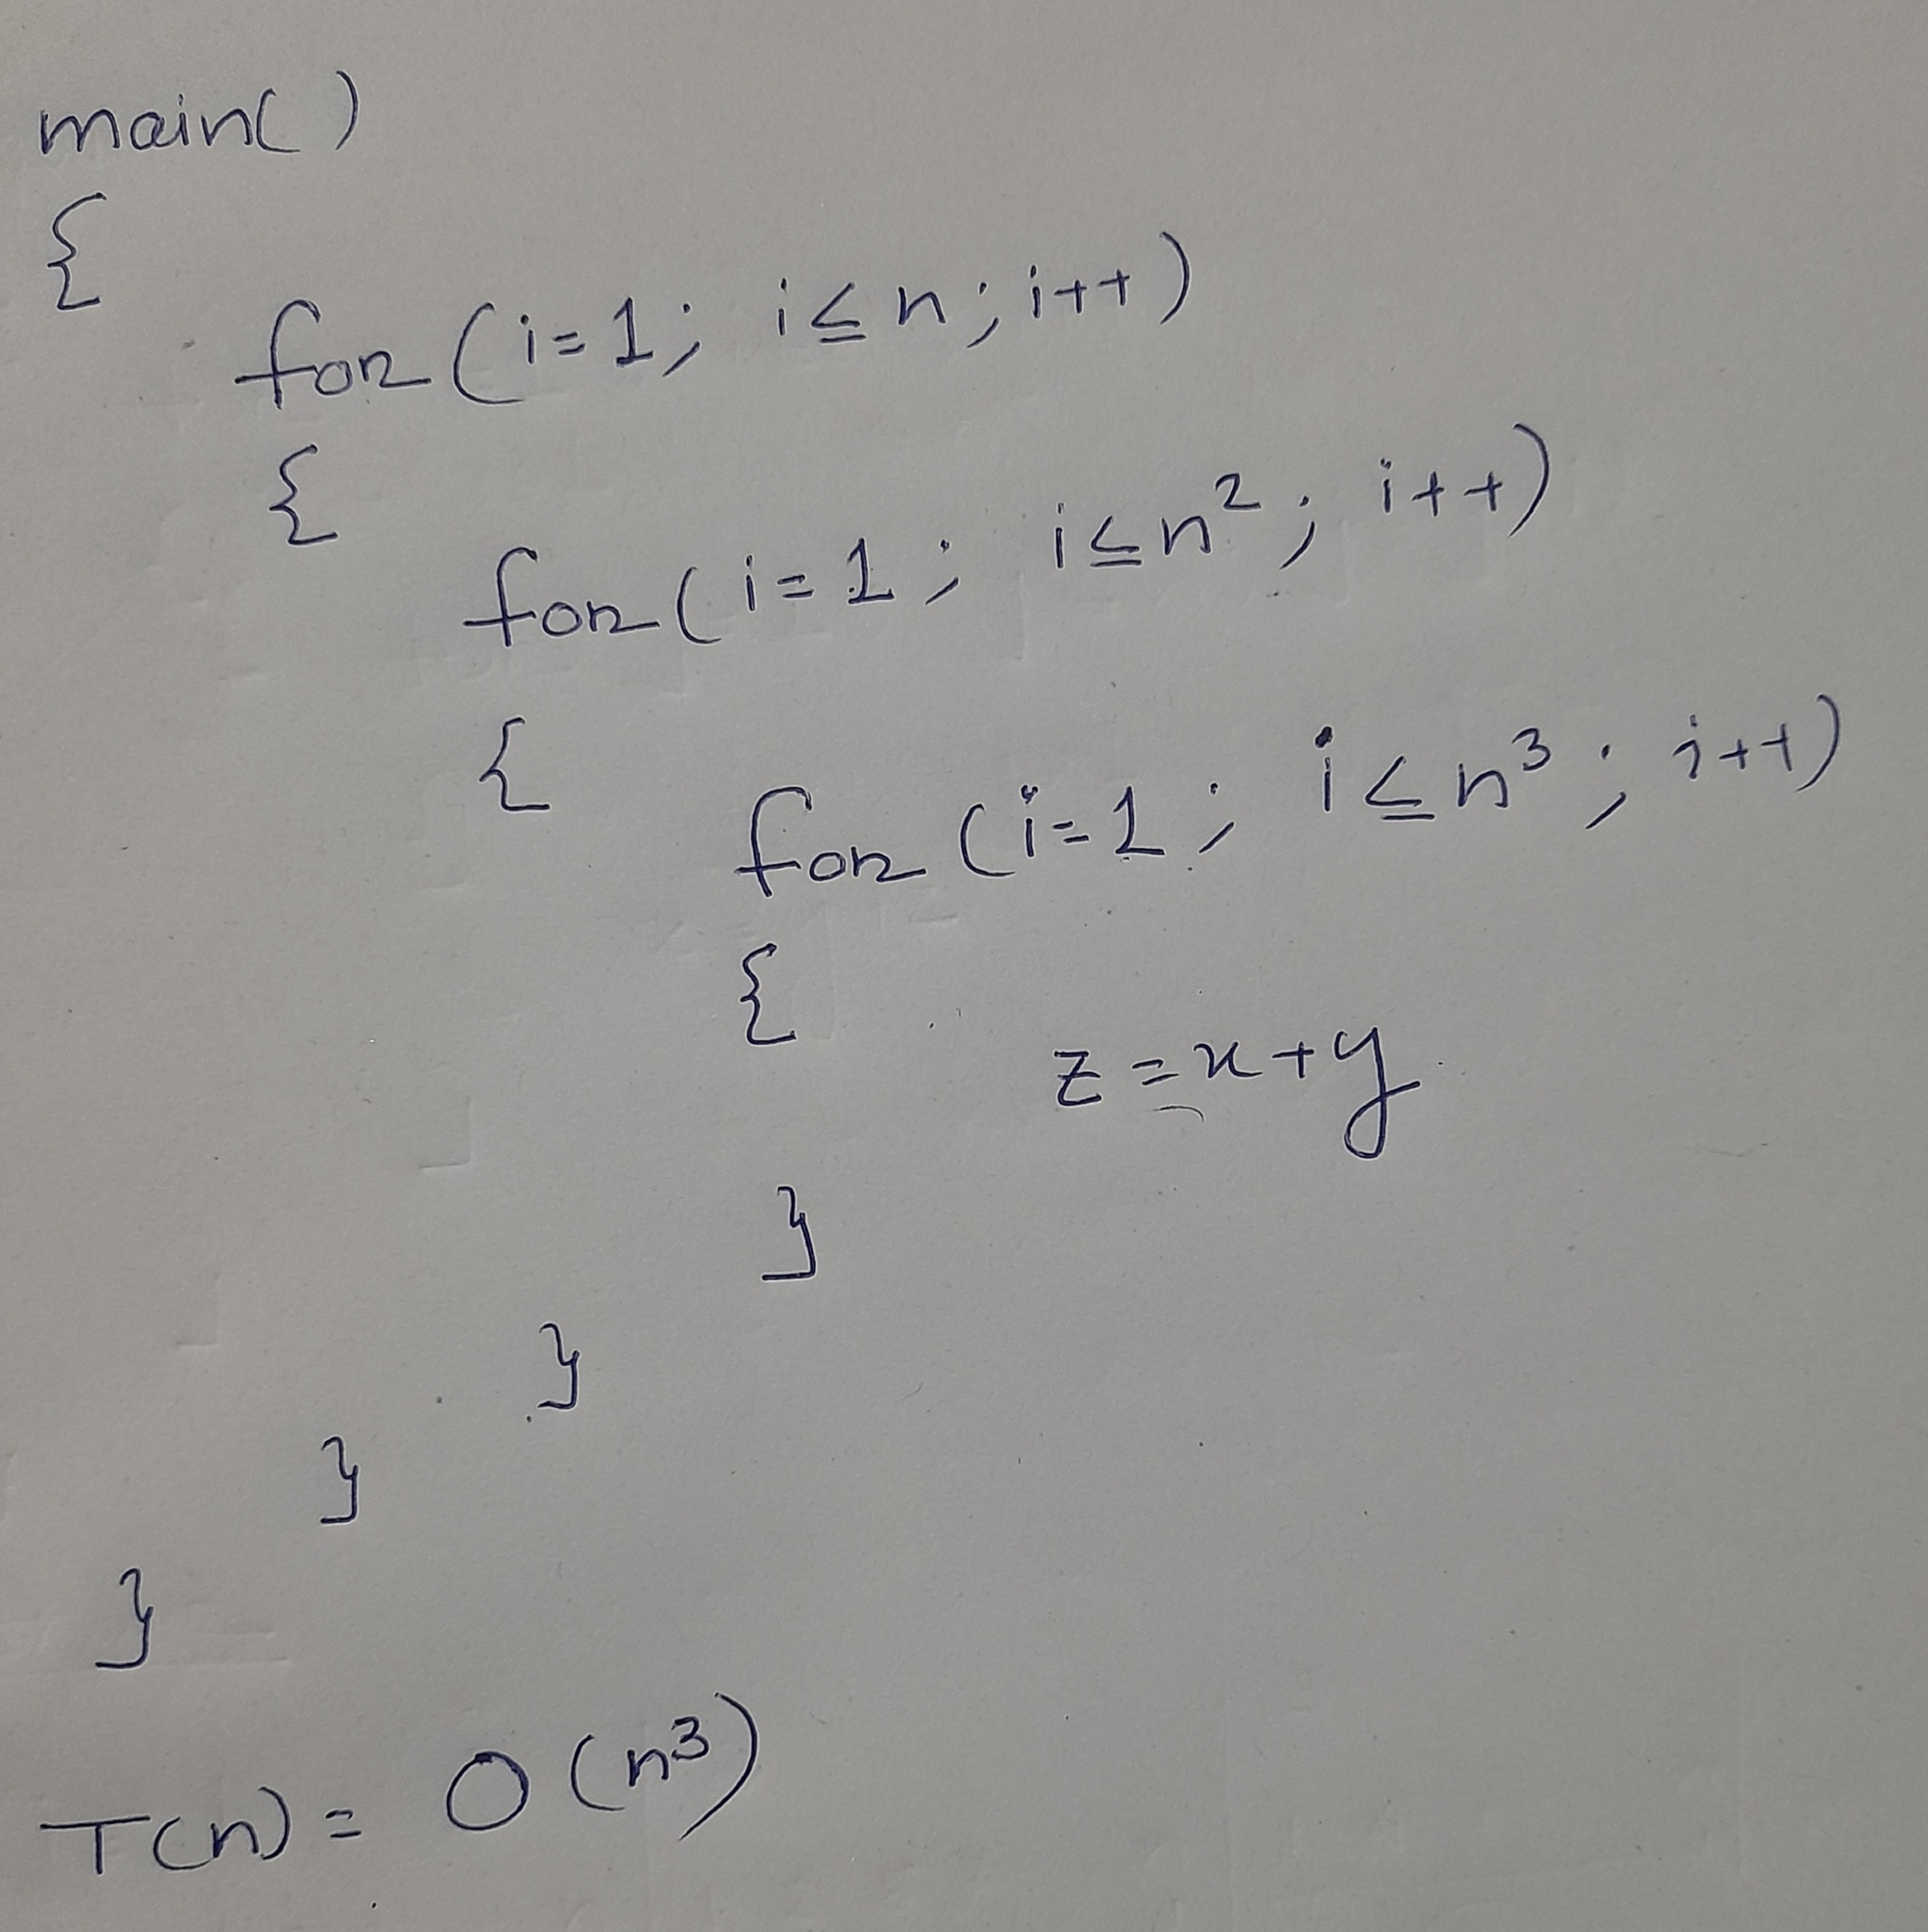 main()
{
for (i=1; i≤n; i++)
{
for (i=1; i≤n²; i++)
{
for (i=1; i≤n³; i++)
{
z=x+y
}
}
}
}
T(n) = O(n³)